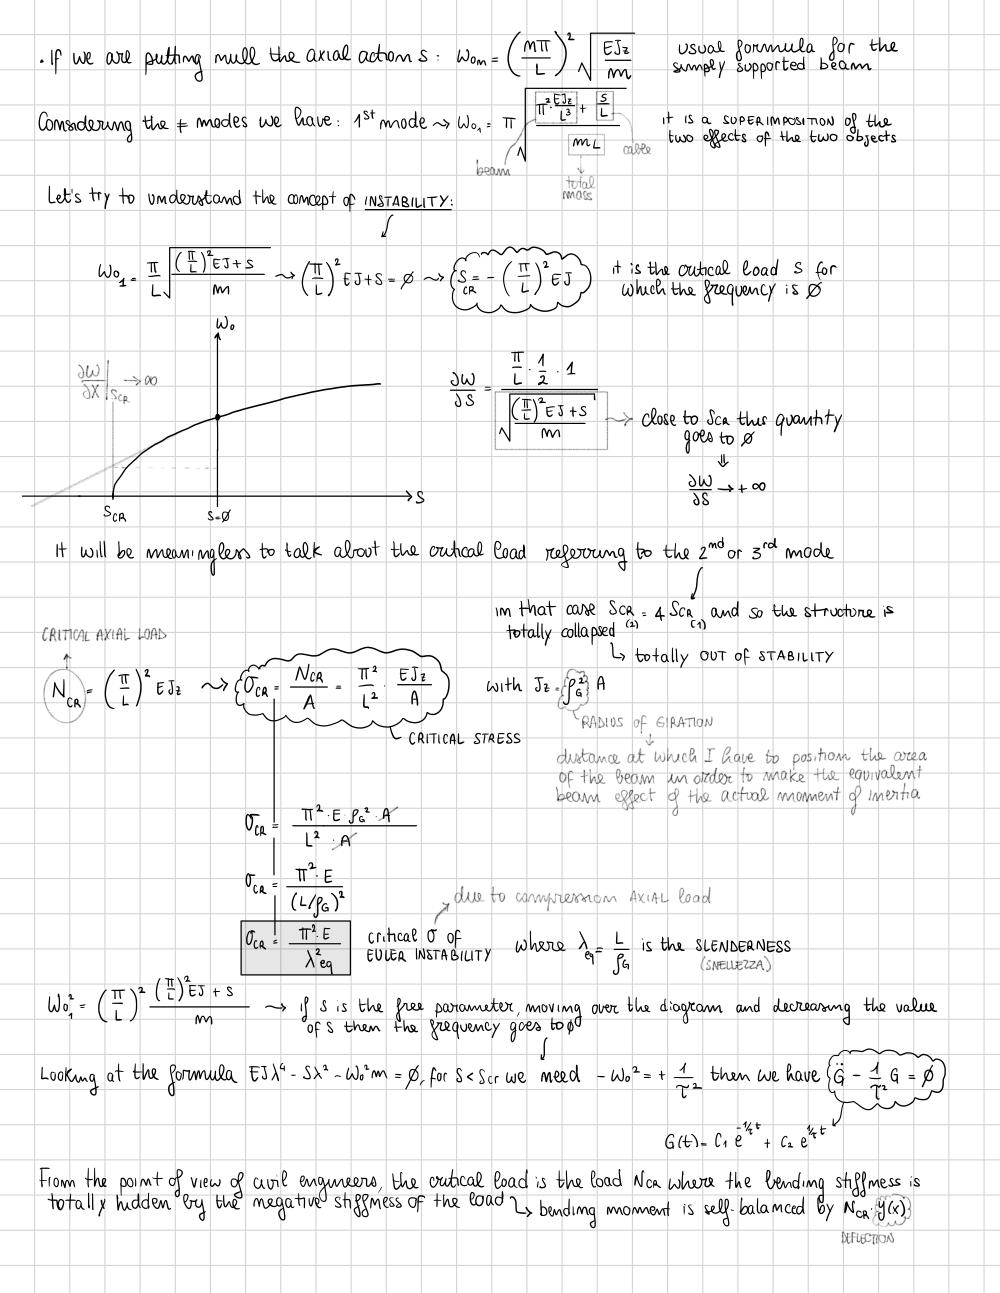 . If we are putting null the axial action S : ω₀ₘ = (mπ/L)² √(EJz/m) usual formula for the
simply supported beam
Considering the ≠ modes we have: 1st mode ⤳ ω₀₁ = π √((π² EJz/L³ + S/L)/(mL)) it is a SUPERIMPOSITION of the
two effects of the two objects
beam
cable
total
mass
Let's try to understand the concept of INSTABILITY:
ω₀₁ = π/L √(((π/L)² EJ + S)/m) ⤳ (π/L)² EJ + S = ∅ ⤳ S_CR = - (π/L)² EJ it is the critical load S for
which the frequency is ∅
ω₀
∂ω/∂x |S_CR → ∞
S_CR
S=∅
S
∂ω/∂S = (π/L · 1/2 · 1) / √(((π/L)² EJ + S)/m) ⤳ close to S_CR this quantity
goes to ∅
⇓
∂ω/∂S → + ∞
It will be meaningless to talk about the critical load referring to the 2nd or 3rd mode
in that case S_CR(2) = 4 S_CR(1) and so the structure is
totally collapsed
↳ totally OUT OF STABILITY
CRITICAL AXIAL LOAD
N_CR = (π/L)² EJz ⤳ σ_CR = N_CR/A = π²/L² · EJz/A with Jz = ρ_G² A
CRITICAL STRESS
RADIUS of GIRATION
distance at which I have to position the area
of the beam in order to make the equivalent
beam effect of the actual moment of inertia
σ_CR = (π² · E ρ_G² · A)/(L² · A)
σ_CR = (π² · E)/(L/ρ_G)²
due to compression AXIAL load
σ_CR = (π² · E)/λ²eq critical σ of
EULER INSTABILITY
where λeq = L/ρ_G is the SLENDERNESS
(SNELLEZZA)
ω₀₁² = (π/L)² ((π/L)² EJ + S)/m → if S is the free parameter, moving over the diagram and decreasing the value
of S then the frequency goes to ∅
Looking at the formula EJλ⁴ - Sλ² - ω₀²m = ∅, for S < Scr we need - ω₀² = + 1/τ² then we have G̈ - 1/τ² G = ∅
G(t) = C₁ e^(-1/τ t) + C₂ e^(1/τ t)
From the point of view of civil engineers, the critical load is the load N_CR where the bending stiffness is
totally hidden by the negative stiffness of the load ↳ bending moment is self-balanced by N_CR · y(x)
DEFLECTION